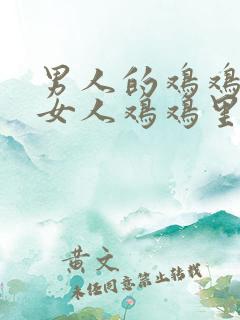 男人的鸡鸡
女人鸡鸡里
黄文
未经同意禁止转载